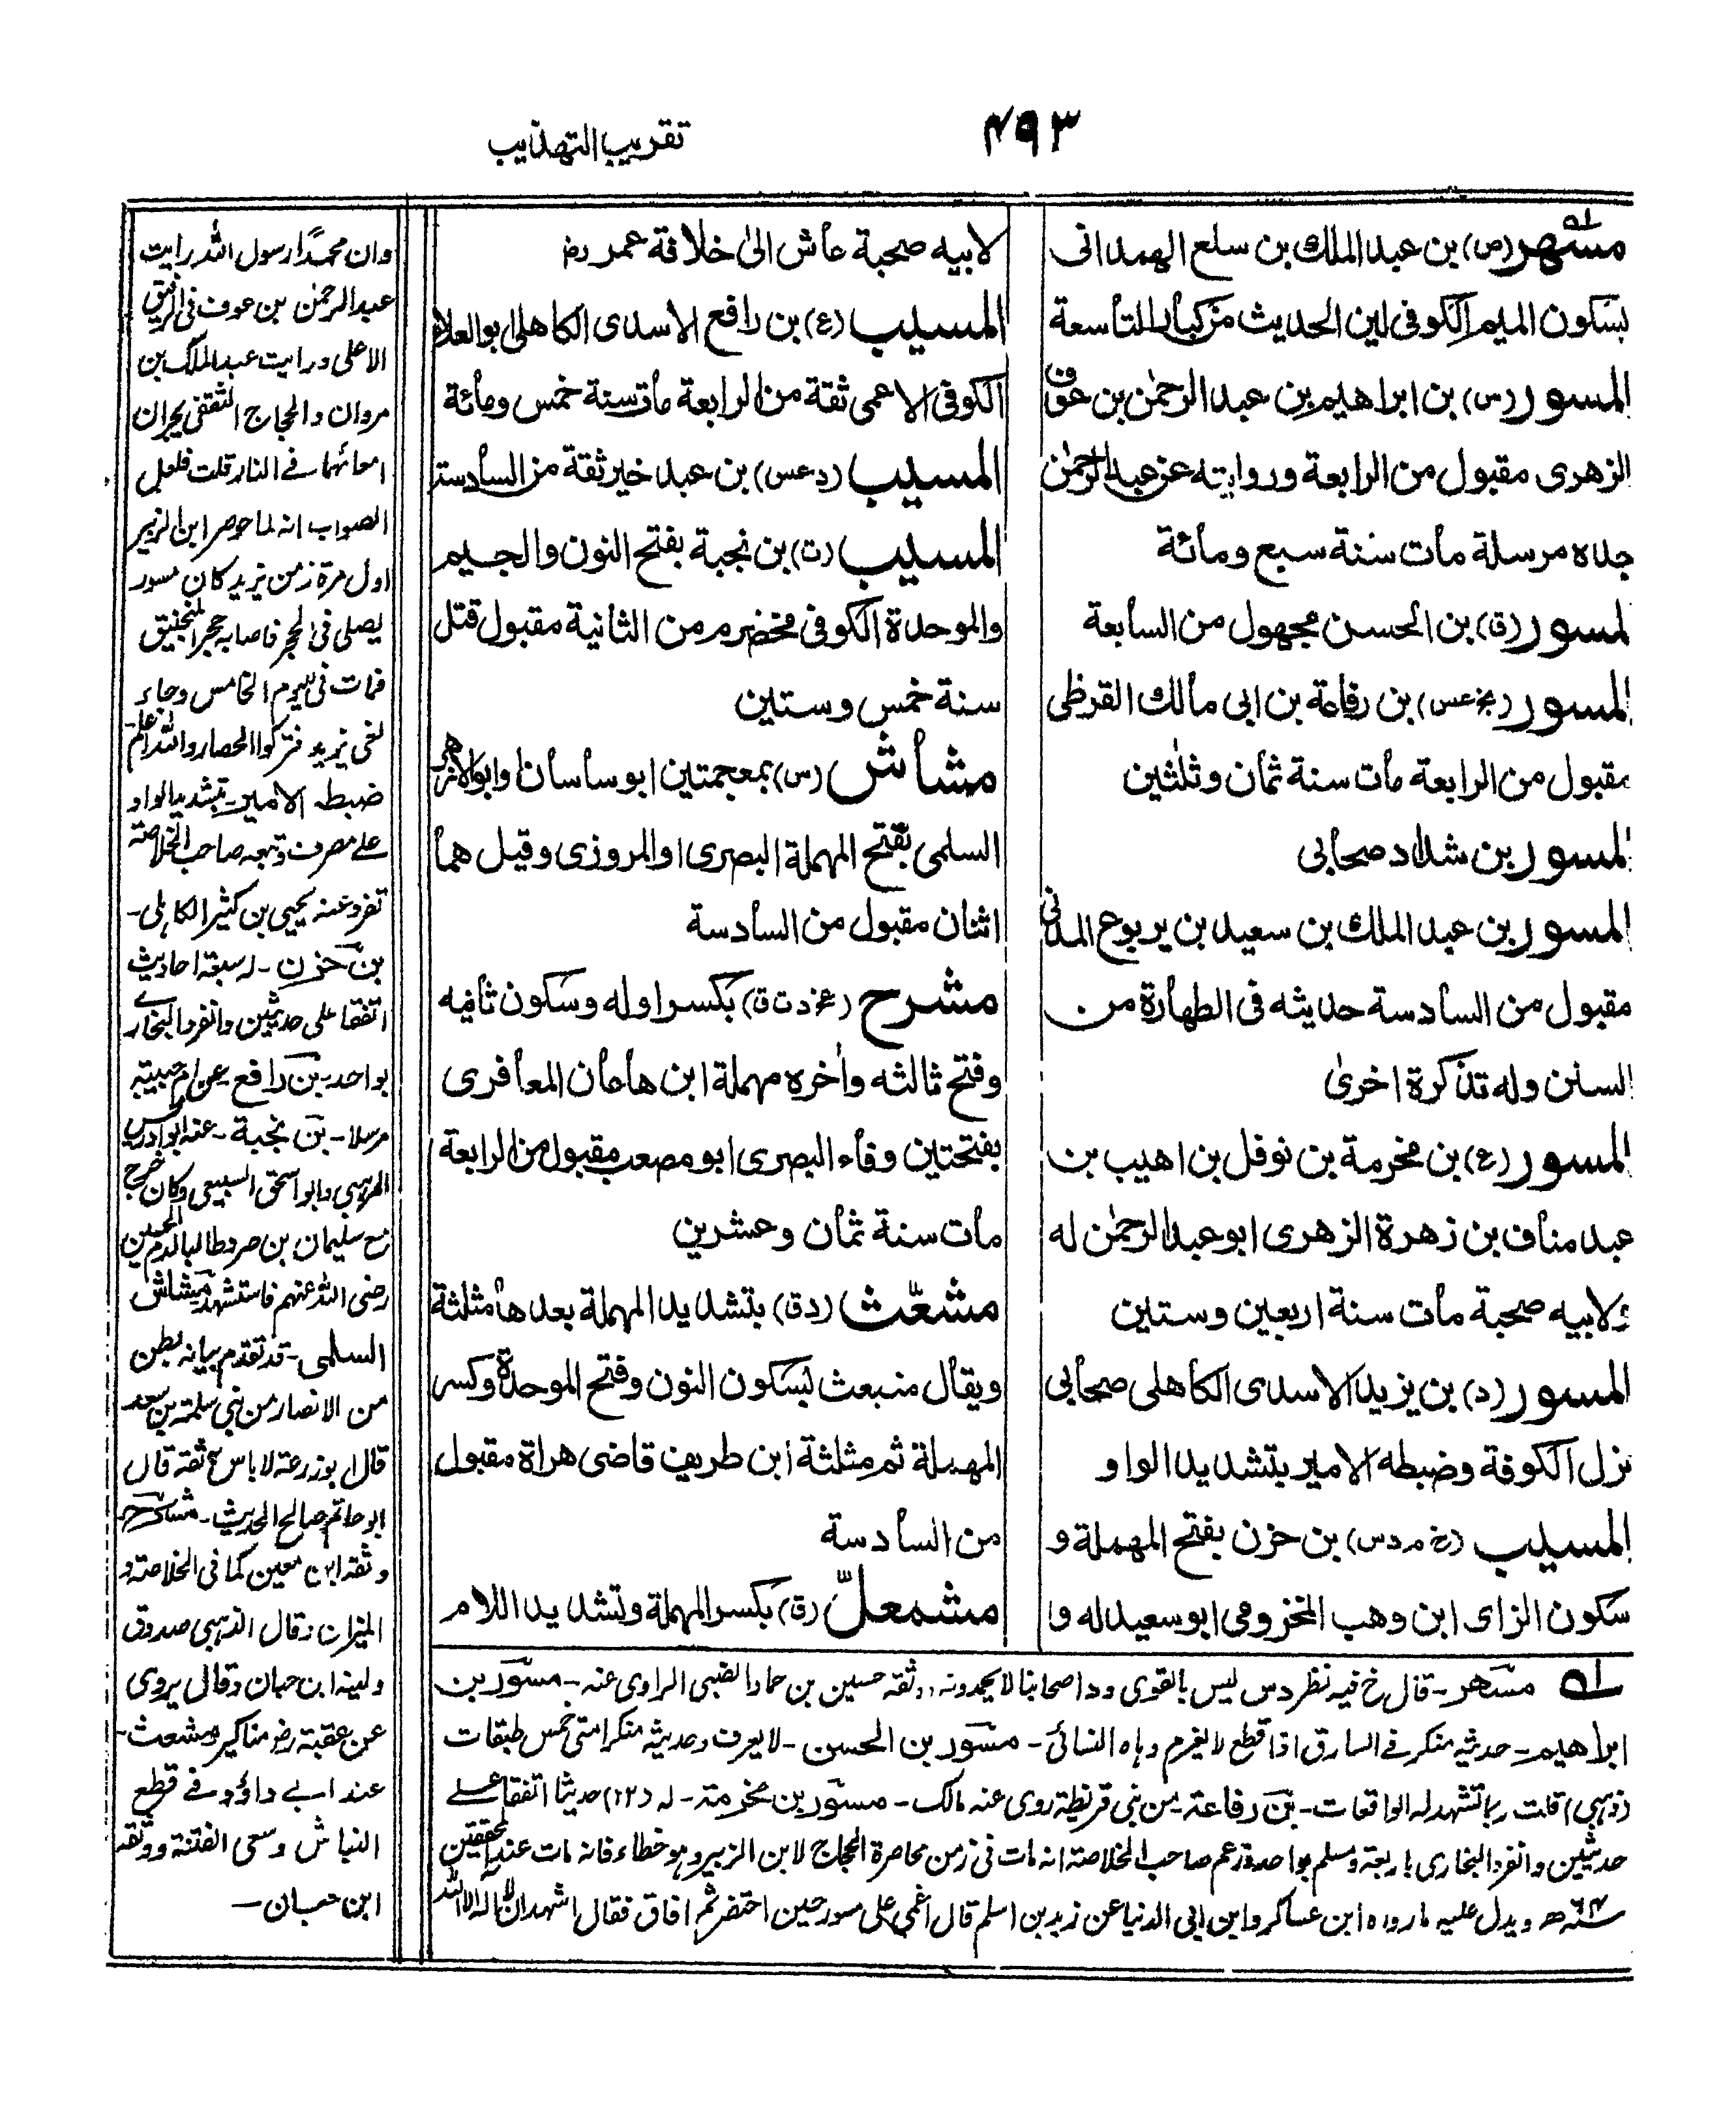 تقريب التهذيب
٤٩٣
مسهر (ص) بن عبد الملك بن سلع الهمدانى
بسكون الميم الكوفى لين الحديث من كبار التاسعة
المسور (س) بن ابراهيم بن عبد الرحمٰن بن عوف
الزهرى مقبول من الرابعة وروايته عن عبد الرحمٰن
جده مرسلة مات سنة سبع ومائة
لمسور (ق) بن الحسن مجهول من السابعة
المسور (بخ عس) بن رفاعة بن ابى مالك القرظى
مقبول من الرابعة مات سنة ثمان وثلثين
المسور بن شداد صحابى
المسور بن عبد الملك بن سعيد بن يربوع المدنى
مقبول من السادسة حديثه فى الطهارة من
السنن وله تذكرة اخرىٰ
المسور (ع) بن مخرمة بن نوفل بن اهيب بن
عبد مناف بن زهرة الزهرى ابو عبد الرحمٰن له
ولابيه صحبة مات سنة اربعين وستين
المسور (د) بن يزيد الاسدى الكاهلى صحابى
نزل الكوفة وضبطه الامير بتشديد الواو
المسيب (خ م د س) بن حزن بفتح المهملة و
سكون الزاى ابن وهب المخزومى ابو سعيد له و
لابيه صحبة عاش الىٰ خلافة عمر رض
المسيب (ع) بن رافع الاسدى الكاهلى ابو العلاء
الكوفى الاعمى ثقة من الرابعة مات سنة خمس ومائة
المسيب (د عس) بن عبد خير ثقة من السادسة
المسيب (ت) بن نجبة بفتح النون والجيم
والموحدة الكوفى مخضرم من الثانية مقبول قتل
سنة خمس وستين
مشاش (س) بمعجمتين ابو ساسان او ابو الازهر
السلمى بفتح المهملة البصرى او المروزى وقيل هما
اثنان مقبول من السادسة
مشرح (عخ د ت ق) بكسر اوله وسكون ثانيه
وفتح ثالثه واٰخره مهملة ابن هاعان المعافرى
بفتحتين وفاء البصرى ابو مصعب مقبول من الرابعة
مات سنة ثمان وعشرين
مشعّث (د ق) بتشديد المهملة بعدها مثلثة
ويقال منبعث بسكون النون وفتح الموحدة وكسر
المهملة ثم مثلثة ابن طريف قاضى هراة مقبول
من السادسة
مشمعلّ (ق) بكسر المهملة وتشديد اللام
لـه مسهر - قال خ فيه نظر د س ليس بالقوى و د اصحابنا لا يحمدونه، وثقه حسين بن حماد الضبى الراوى عنه - مسور بن
ابراهيم - حديثه منكر فى السارق اذا قطع لا يغرم وهاه النسائى - مسور بن الحسن - لا يعرف وحديثه منكر امتى خمس طبقات
(ذهبى) قلت ربما تشهد له الواقعات - بن رفاعة - من بنى قريظة روى عنه مالك - مسور بن مخرمة - له (٢٢) حديثا اتفقا على
حديثين وانفرد البخارى باربعة ومسلم بواحد وزعم صاحب الخلاصة انه مات فى زمن محاصرة الحجاج لابن الزبير وهو خطاء فانه مات عند المحققين
سنه ٦٤ هـ ويدل عليه ما رواه ابن عساكر وابن ابى الدنيا عن زيد بن اسلم قال اغمى على مسور حين احتضر ثم افاق فقال اشهد ان لا اله الا الله
وان محمدًا رسول الله رايت
عبد الرحمٰن بن عوف فى الرفيق
الاعلى ورايت عبد الملك بن
مروان والحجاج الثقفى يجران
امعائهما فى النار قلت فلعل
الصواب انه لما حوصر ابن الزبير
اول مرة زمن يزيد كان مسور
يصلى فى الحجر فاصابه حجر المنجنيق
فمات فى اليوم الخامس وجاء
نعى يزيد فتركوا الحصار والله اعلم
ضبطه الامير - بتشديد الواو
على مصرف وتبعه صاحب الخلاصة
تفرد عنه يحيى بن كثير الكاهلى -
بن حزن - له سبعة احاديث
اتفقا على حديثين وانفرد البخارى
بواحد - بن رافع - عن ام حبيبة
مرسلا - بن نجبة - عنه ابو ادريس
المرهبى وابو اسحق السبيعى وكان خرج
مع سليمان بن صرد طالبا لدم الحسين
رضى الله عنهم فاستشهد مشاش
السلمى - قد تقدم بيانه بطن
من الانصار من بنى سلمة بن سعد
قال ابو زرعة لا باس به ثقة قال
ابو حاتم صالح الحديث - مشرح
وثقه ابن معين كما فى الخلاصة و
الميزان وقال الذهبى صدوق
ولينه ابن حبان وقال يروى
عن عقبة رض مناكير مشعث -
عند ابى داؤد فى قطع
النباش وسعى الفتنة ووثقه
ابن حبان -